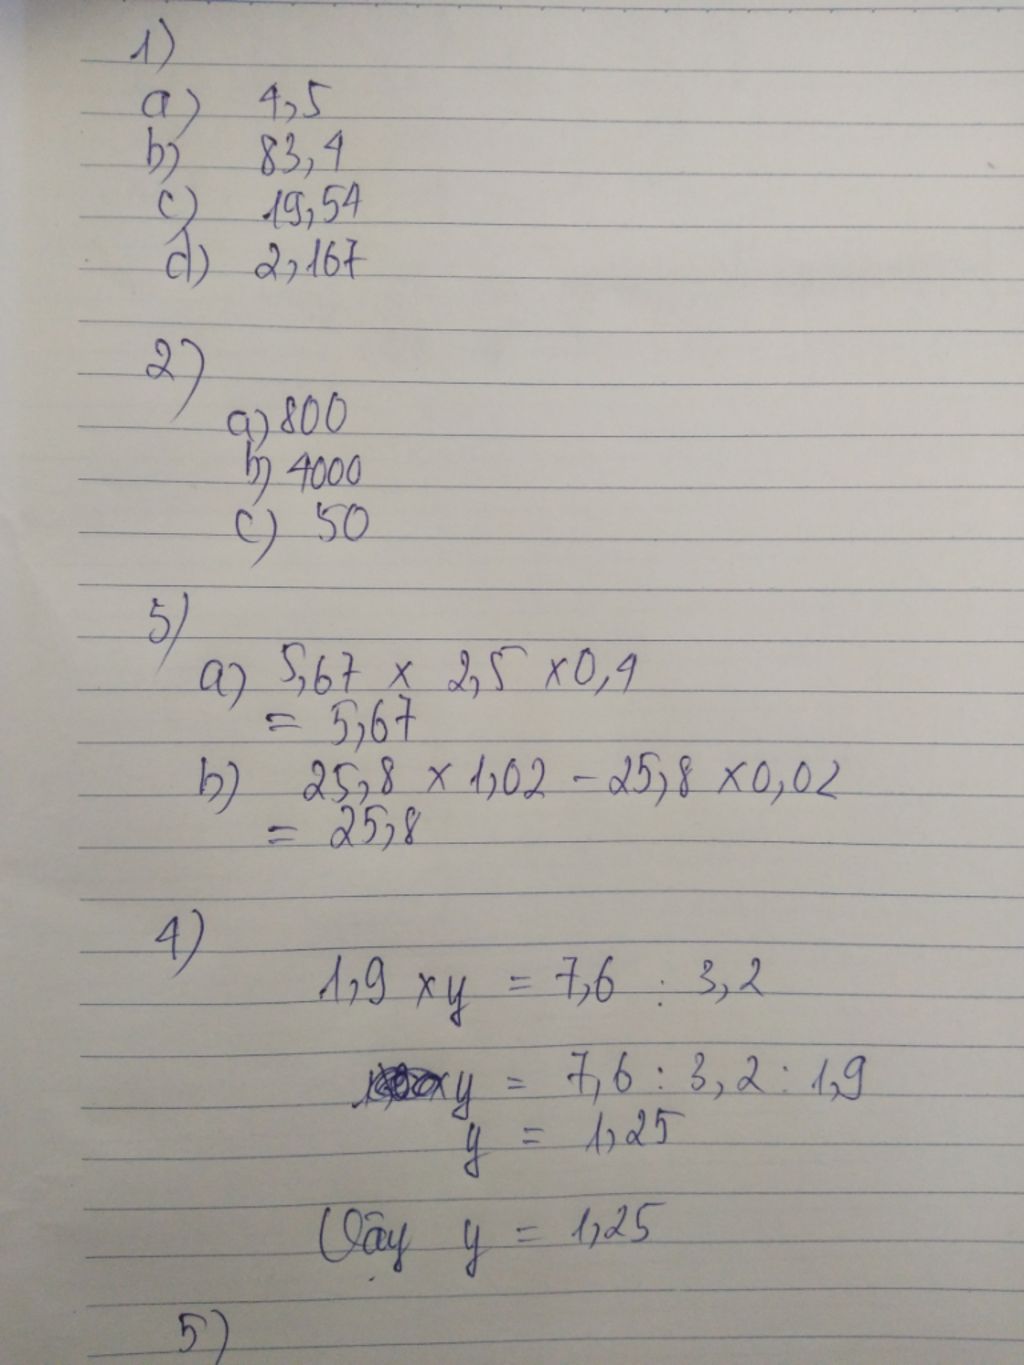 1)
a) 4,5
b) 83,4
c) 19,54
d) 2,167
2)
a) 800
b) 4000
c) 50
5)
a) 5,67 x 2,5 x 0,4
= 5,67
b) 25,8 x 1,02 - 25,8 x 0,02
= 25,8
4)
1,9 x y = 7,6 : 3,2
y = 7,6 : 3,2 : 1,9
y = 1,25
Vậy y = 1,25
5)